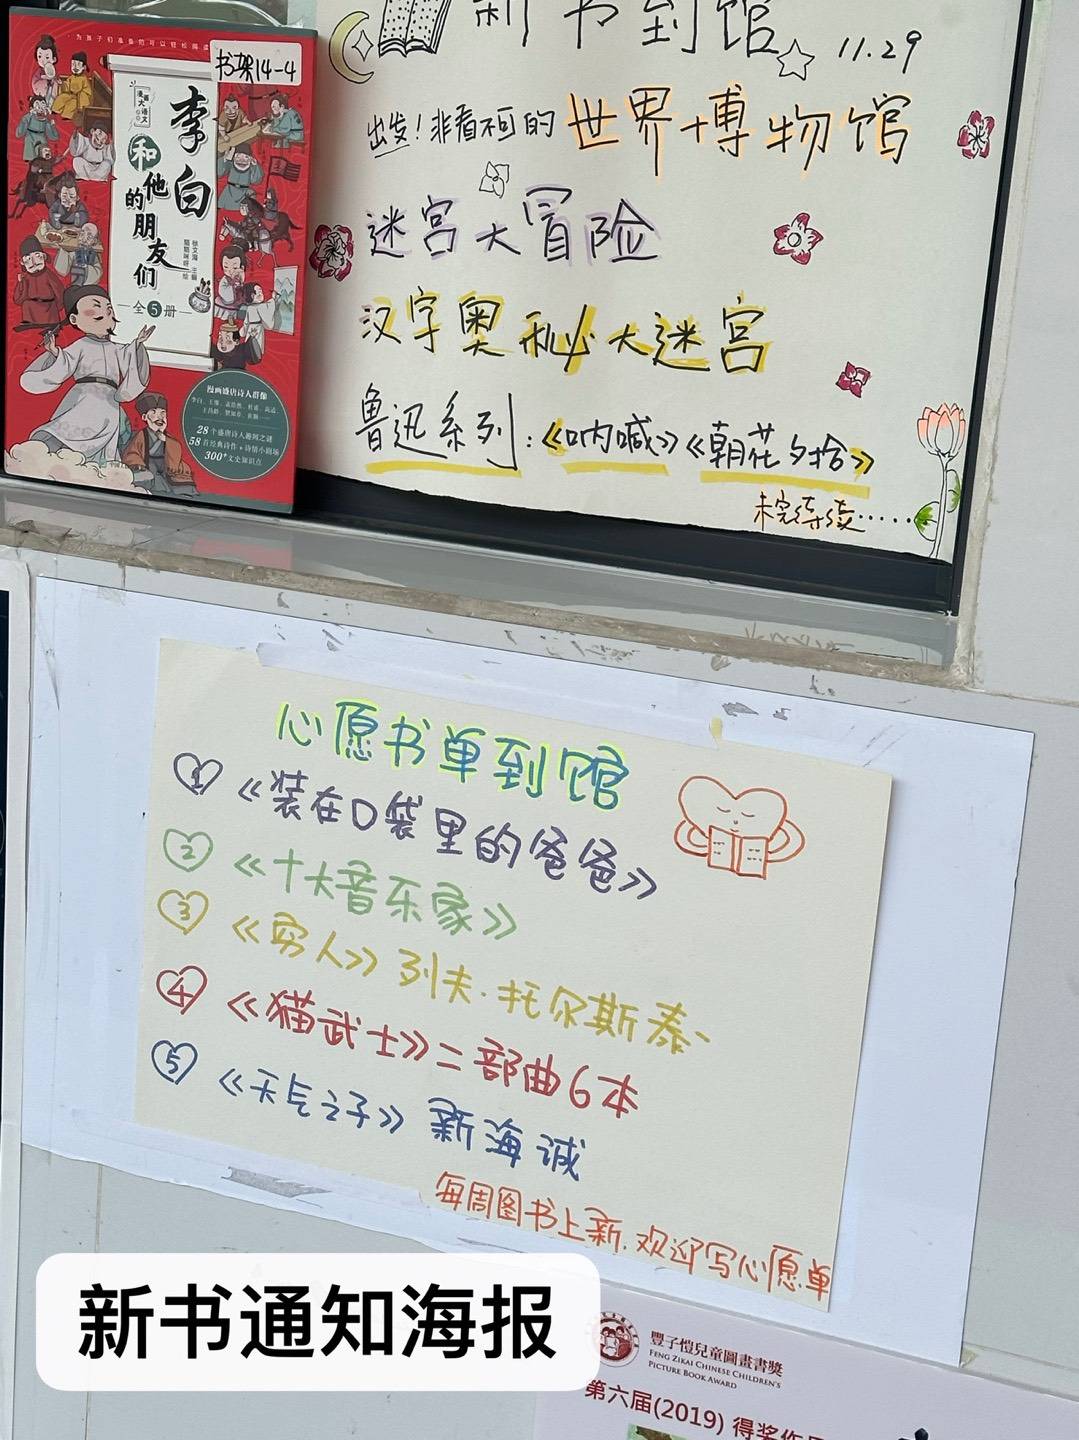 新书到馆 11.29
出发！非看不可的世界博物馆
迷宫大冒险
汉字奥秘大迷宫
鲁迅系列：《呐喊》《朝花夕拾》
未完待续……
为孩子们准备的可以轻松阅读
书架14-4
漫画大语文
李白
和他的朋友们
全5册
漫画盛唐诗人群像
28个盛唐诗人趣闻之谜
58首经典诗作+诗情小剧场
300+文史知识点
心愿书单到馆
1《装在口袋里的爸爸》
2《十大音乐家》
3《穷人》列夫·托尔斯泰
4《猫武士》二部曲6本
5《天气之子》新海诚
每周图书上新，欢迎写心愿单
新书通知海报
豐子愷兒童圖畫書獎
FENG ZIKAI CHINESE CHILDREN'S
PICTURE BOOK AWARD
第六届(2019) 得奖作